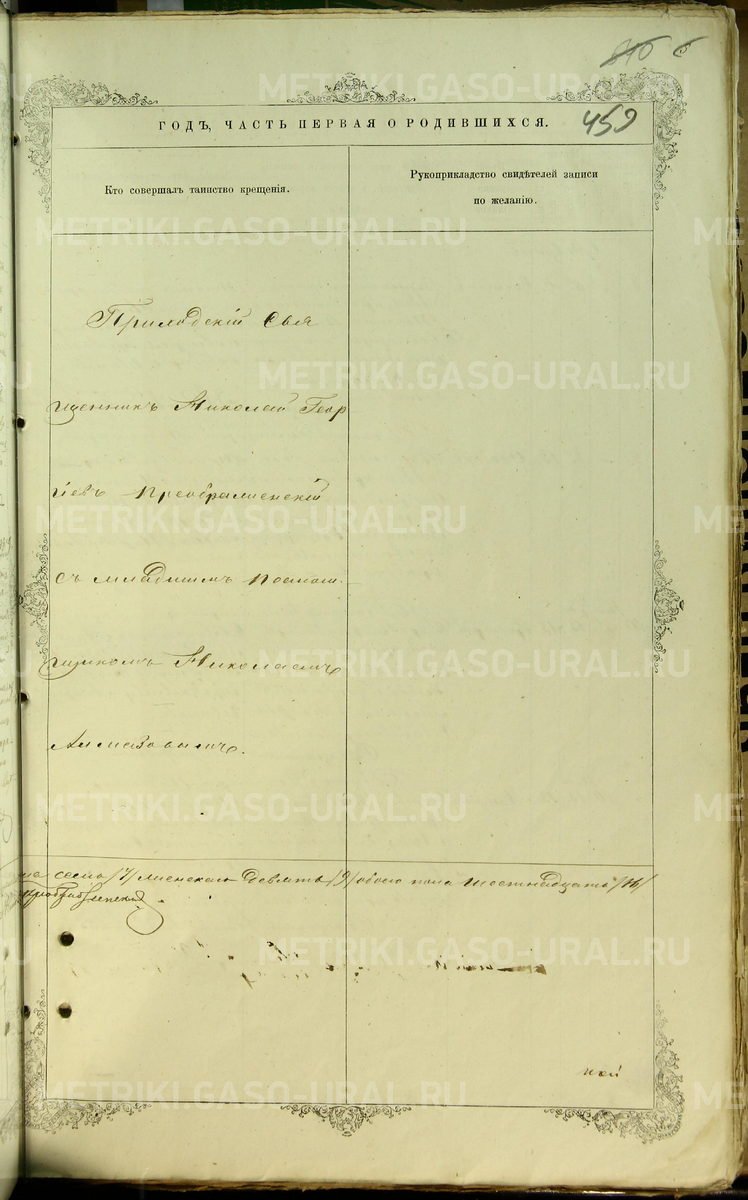 459
ГОДЪ, ЧАСТЬ ПЕРВАЯ О РОДИВШИХСЯ.
Кто совершалъ таинство крещенія.
Рукоприкладство свидѣтелей записи
по желанію.
Приходскій Свя
щенникъ Николай Геор
гіевъ Преображенскій
съ младшимъ помощ-
никомъ Николаемъ
Алмазовымъ.
на семь /7/ женска девять /9/ обоего пола шестнадцать /16/
Преображенскій
METRIKI.GASO-URAL.RU